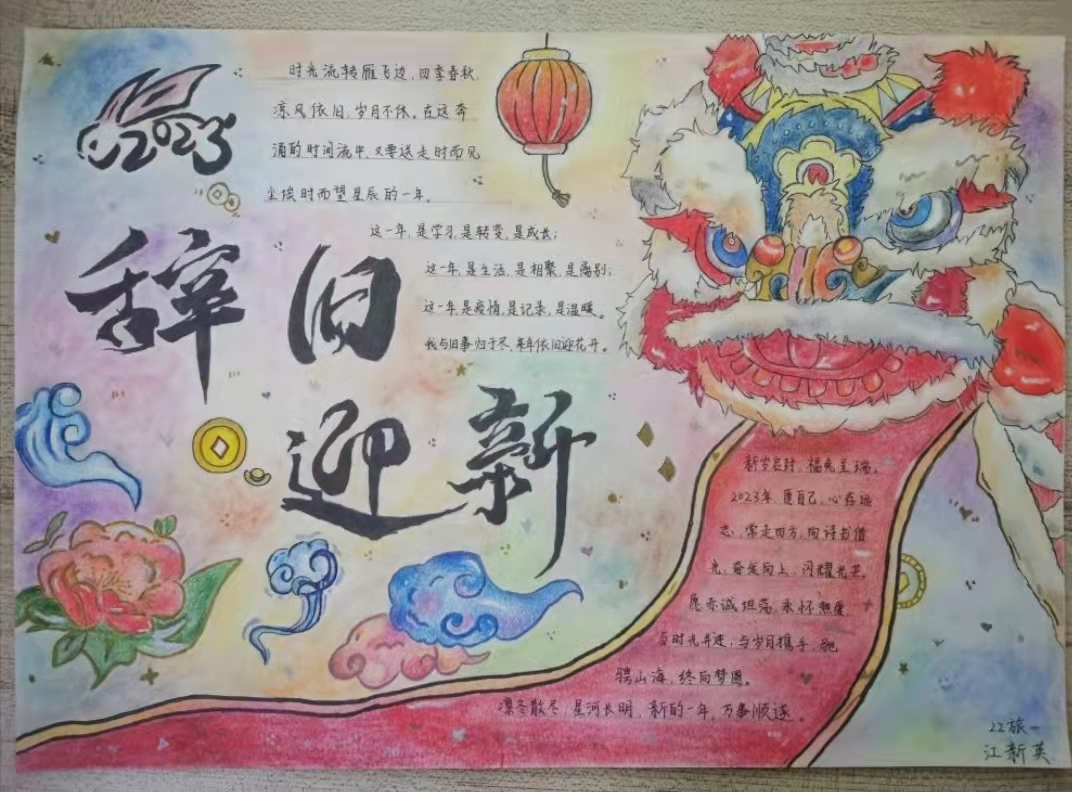 2023
时光流转雁飞边，四季春秋，
凉风依旧，岁月不休。在这奔
涌的时间流中，又要送走时而见
尘埃时而望星辰的一年。
这一年，是学习，是转变，是成长；
这一年，是生活，是相聚，是离别；
这一年，是疫情，是记录，是温暖。
我与旧事归于尽，来年依旧迎花开。
辞旧
迎新
新岁启封，福兔呈瑞。
2023年，愿自己，心存远
志，常走四方，向诗书借
光，奋发向上，闪耀光芒。
愿赤诚坦荡，永怀热爱，
与时光并进，与岁月携手，驰
骋山海，终向梦圆。
凛冬散尽，星河长明，新的一年，万事顺遂。
22旅一
江新英